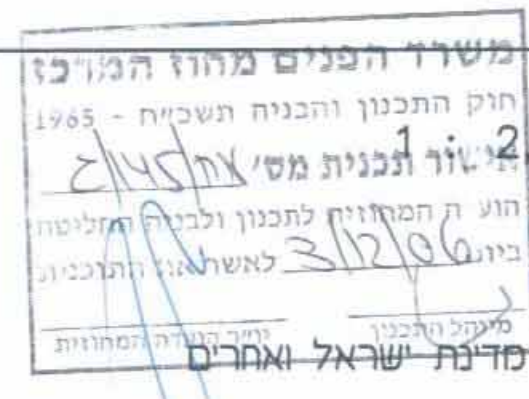 משרד הפנים מחוז המרכז
חוק התכנון והבניה תשכ"ח - 1965
1 . 2
אישור תכנית מס'
הועדה המחוזית לתכנון ולבניה החליטה
ביום 3/12/06 לאשר את התוכנית
מינהל התכנון יו"ר הועדה המחוזית
מדינת ישראל ואחרים